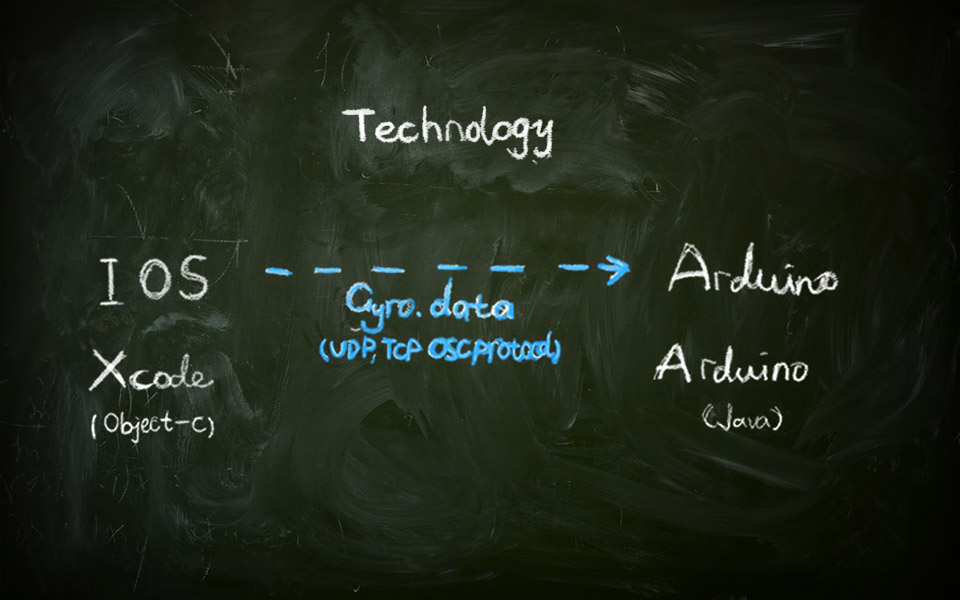 Technology
IOS
Gyro. data
(UDP, TCP OSC protocol)
Arduino
Xcode
(Object-C)
Arduino
(Java)